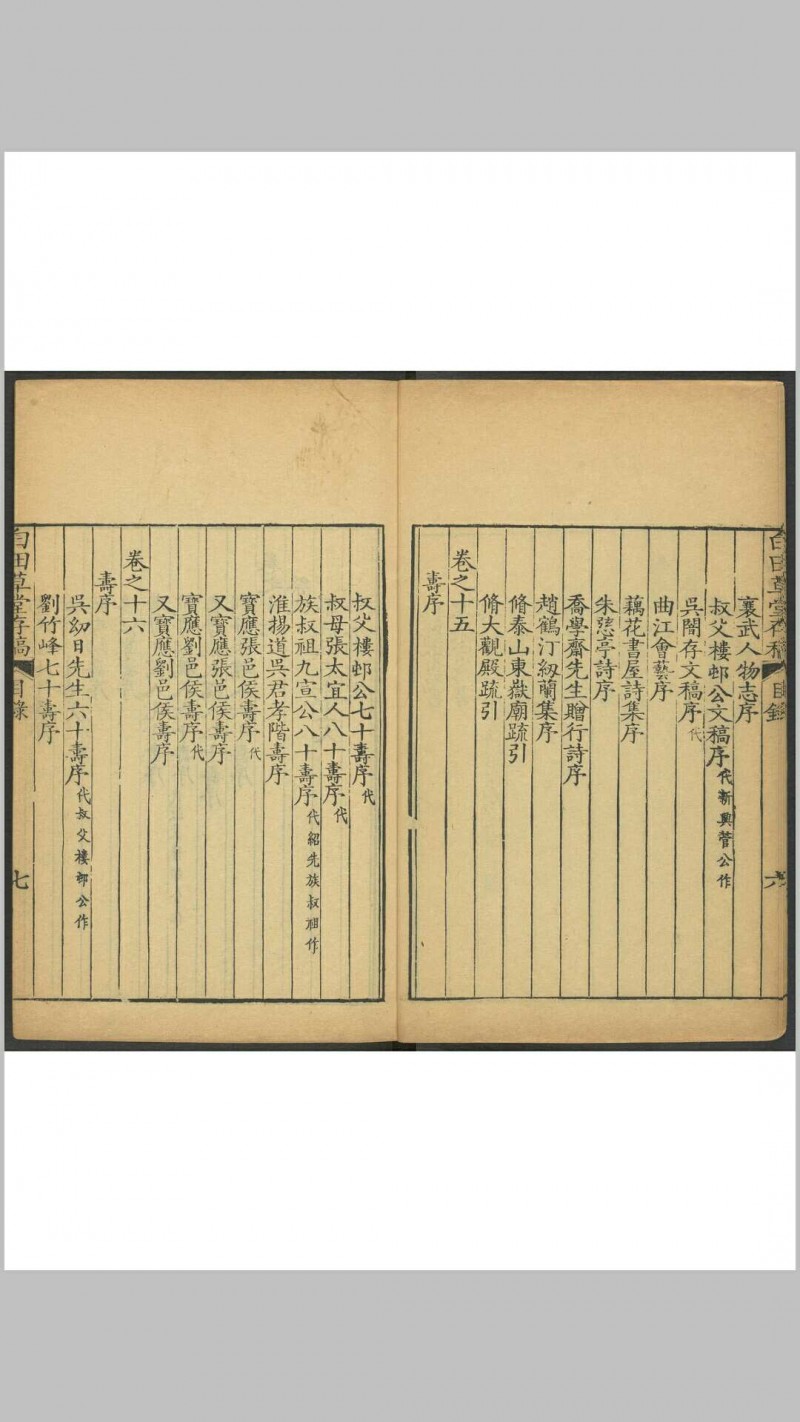 白田草堂存稿 目錄 六
襄武人物志序
叔父樓邨公文稿序 代新興菅公作
吳閶存文稿序 代
曲江會藝序
藕花書屋詩集序
朱慈亭詩序
喬學齋先生贈行詩序
趙鶴汀紉蘭集序
脩泰山東嶽廟疏引
脩大觀殿疏引
卷之十五
壽序
叔父樓邨公七十壽序 代
叔母張太宜人八十壽序 代
族叔祖九宣公八十壽序 代紹先族叔祖作
淮揚道吳君孝階壽序
寶應張邑侯壽序 代
又寶應張邑侯壽序
寶應劉邑侯壽序 代
又寶應劉邑侯壽序
卷之十六
壽序
吳幼日先生六十壽序 代叔父樓邨公作
劉竹峰七十壽序
白田草堂存稿 目錄 七